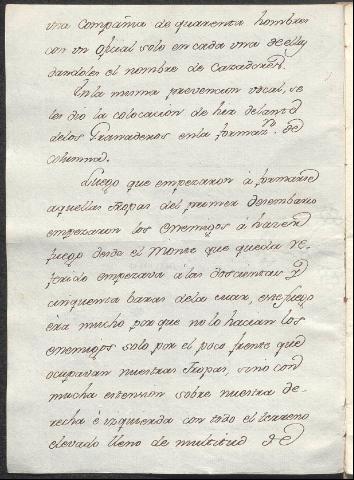 una Compañia de quarenta hombres
con un Oficial solo en cada una de ellas
dandoles el nombre de Cazadores.
En la misma prevencion vocal, se
les dio la colocacion de hir delante
de los Granaderos en la formazn. de
columna.
Luego que empezaron á formarse
aquellas tropas del primer desembarco
empezaron los enemigos á hazer
fuego desde el Monte que queda re-
ferido empezava á las doscientas y
cinquenta baras de la mar, este fuego
éra mucho por que no lo hacian los
enemigos solo por el poco frente que
ocupavan nuestras tropas, sino con
mucha estension sobre nuestra de-
recha é izquierda con todo el terreno
elevado lleno de multitud de